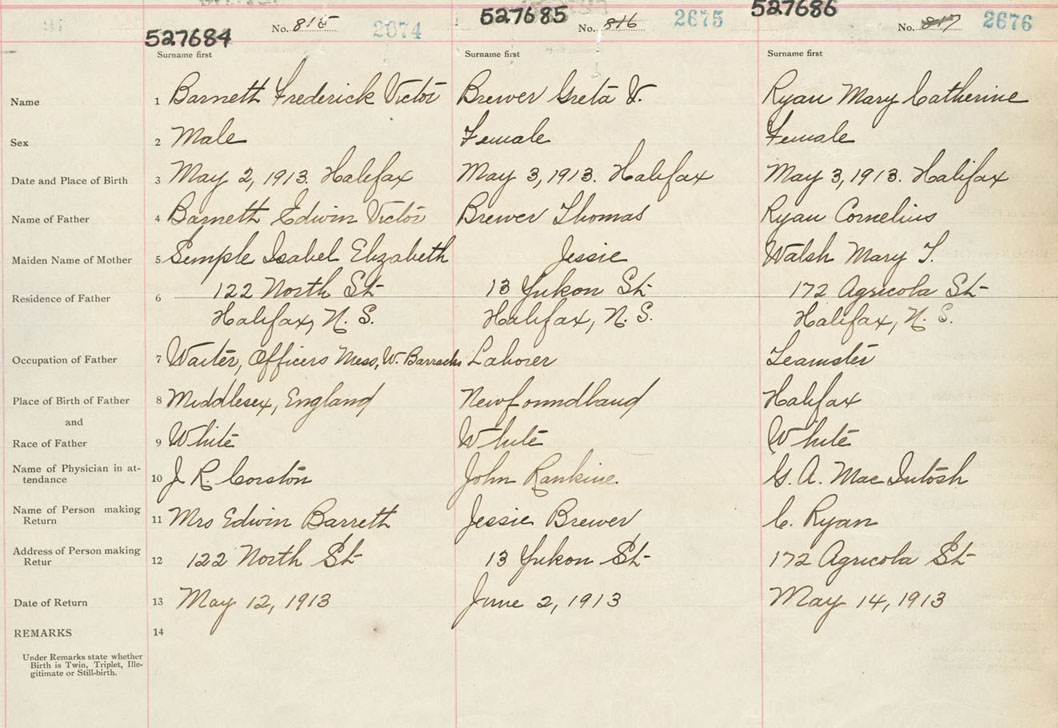 527684 527685 527686
No. 815 2674 No. 816 2675 No. 817 2676
Surname first Surname first Surname first
Name 1 Barnett Frederick Victor Brewer Greta V. Ryan Mary Catherine
Sex 2 Male Female Female
Date and Place of Birth 3 May 2, 1913. Halifax May 3, 1913. Halifax May 3, 1913. Halifax
Name of Father 4 Barnett Edwin Victor Brewer Thomas Ryan Cornelius
Maiden Name of Mother 5 Semple Isabel Elizabeth Jessie Walsh Mary T.
Residence of Father 6 122 North St 13 Yukon St 172 Agricola St
Halifax, N. S. Halifax, N. S. Halifax, N. S.
Occupation of Father 7 Waiter, Officers Mess, W. Barracks Laborer Teamster
Place of Birth of Father 8 Middlesex, England Newfoundland Halifax
and
Race of Father 9 White White White
Name of Physician in at-
tendance 10 J R. Corston John Rankine. G. A. Mac Intosh
Name of Person making
Return 11 Mrs Edwin Barrett Jessie Brewer C. Ryan
Address of Person making
Retur 12 122 North St 13 Yukon St 172 Agricola St
Date of Return 13 May 12, 1913 June 2, 1913 May 14, 1913
REMARKS 14
Under Remarks state whether
Birth is Twin, Triplet, Ille-
gitimate or Still-birth.